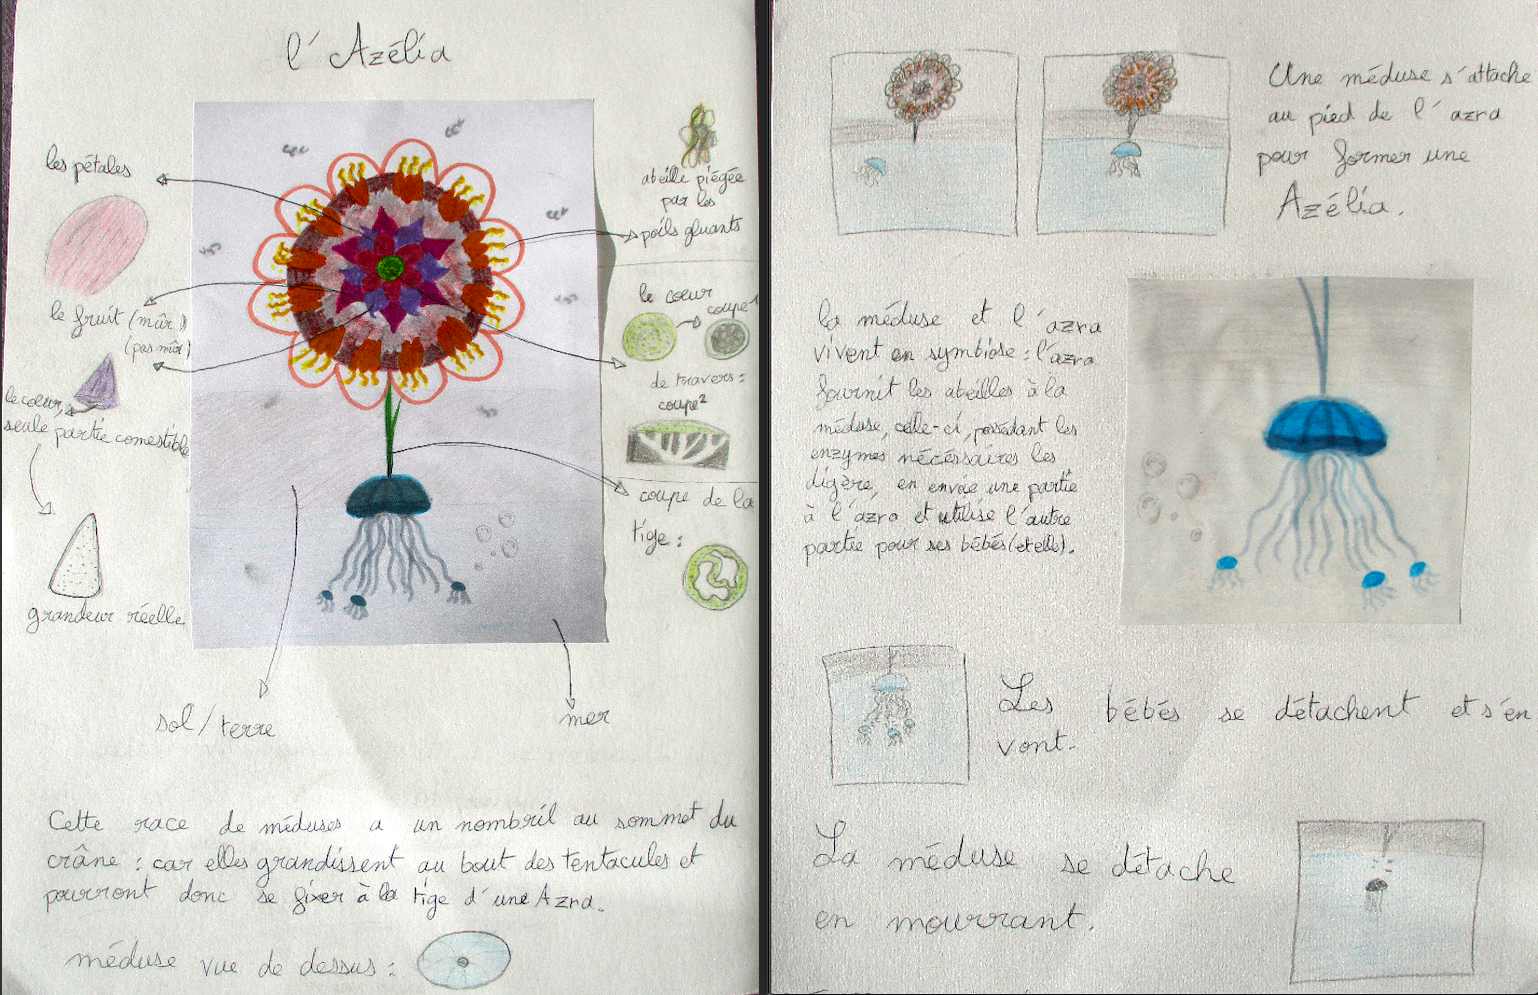 l'Azélia
les pétales
le fruit (mûr)
(pas mûr)
le coeur,
seule partie comestible
grandeur réelle
abeille piégée
par les
poils gluants
le coeur
coupe 1
de travers :
coupe²
coupe de la
tige :
sol/terre
mer
Cette race de méduses a un nombril au sommet du
crâne : car elles grandissent au bout des tentacules et
pourront donc se fixer à la tige d'une Azra.
méduse vue de dessus :
Une méduse s'attache
au pied de l'azra
pour former une
Azélia.
la méduse et l'azra
vivent en symbiose : l'azra
fournit les abeilles à la
méduse, celle-ci, possédant les
enzymes nécéssaires les
digère, en envoie une partie
à l'azra et utilise l'autre
partie pour ses bébés (et elle).
Les bébés se détachent et s'en
vont.
La méduse se détache
en mourrant.